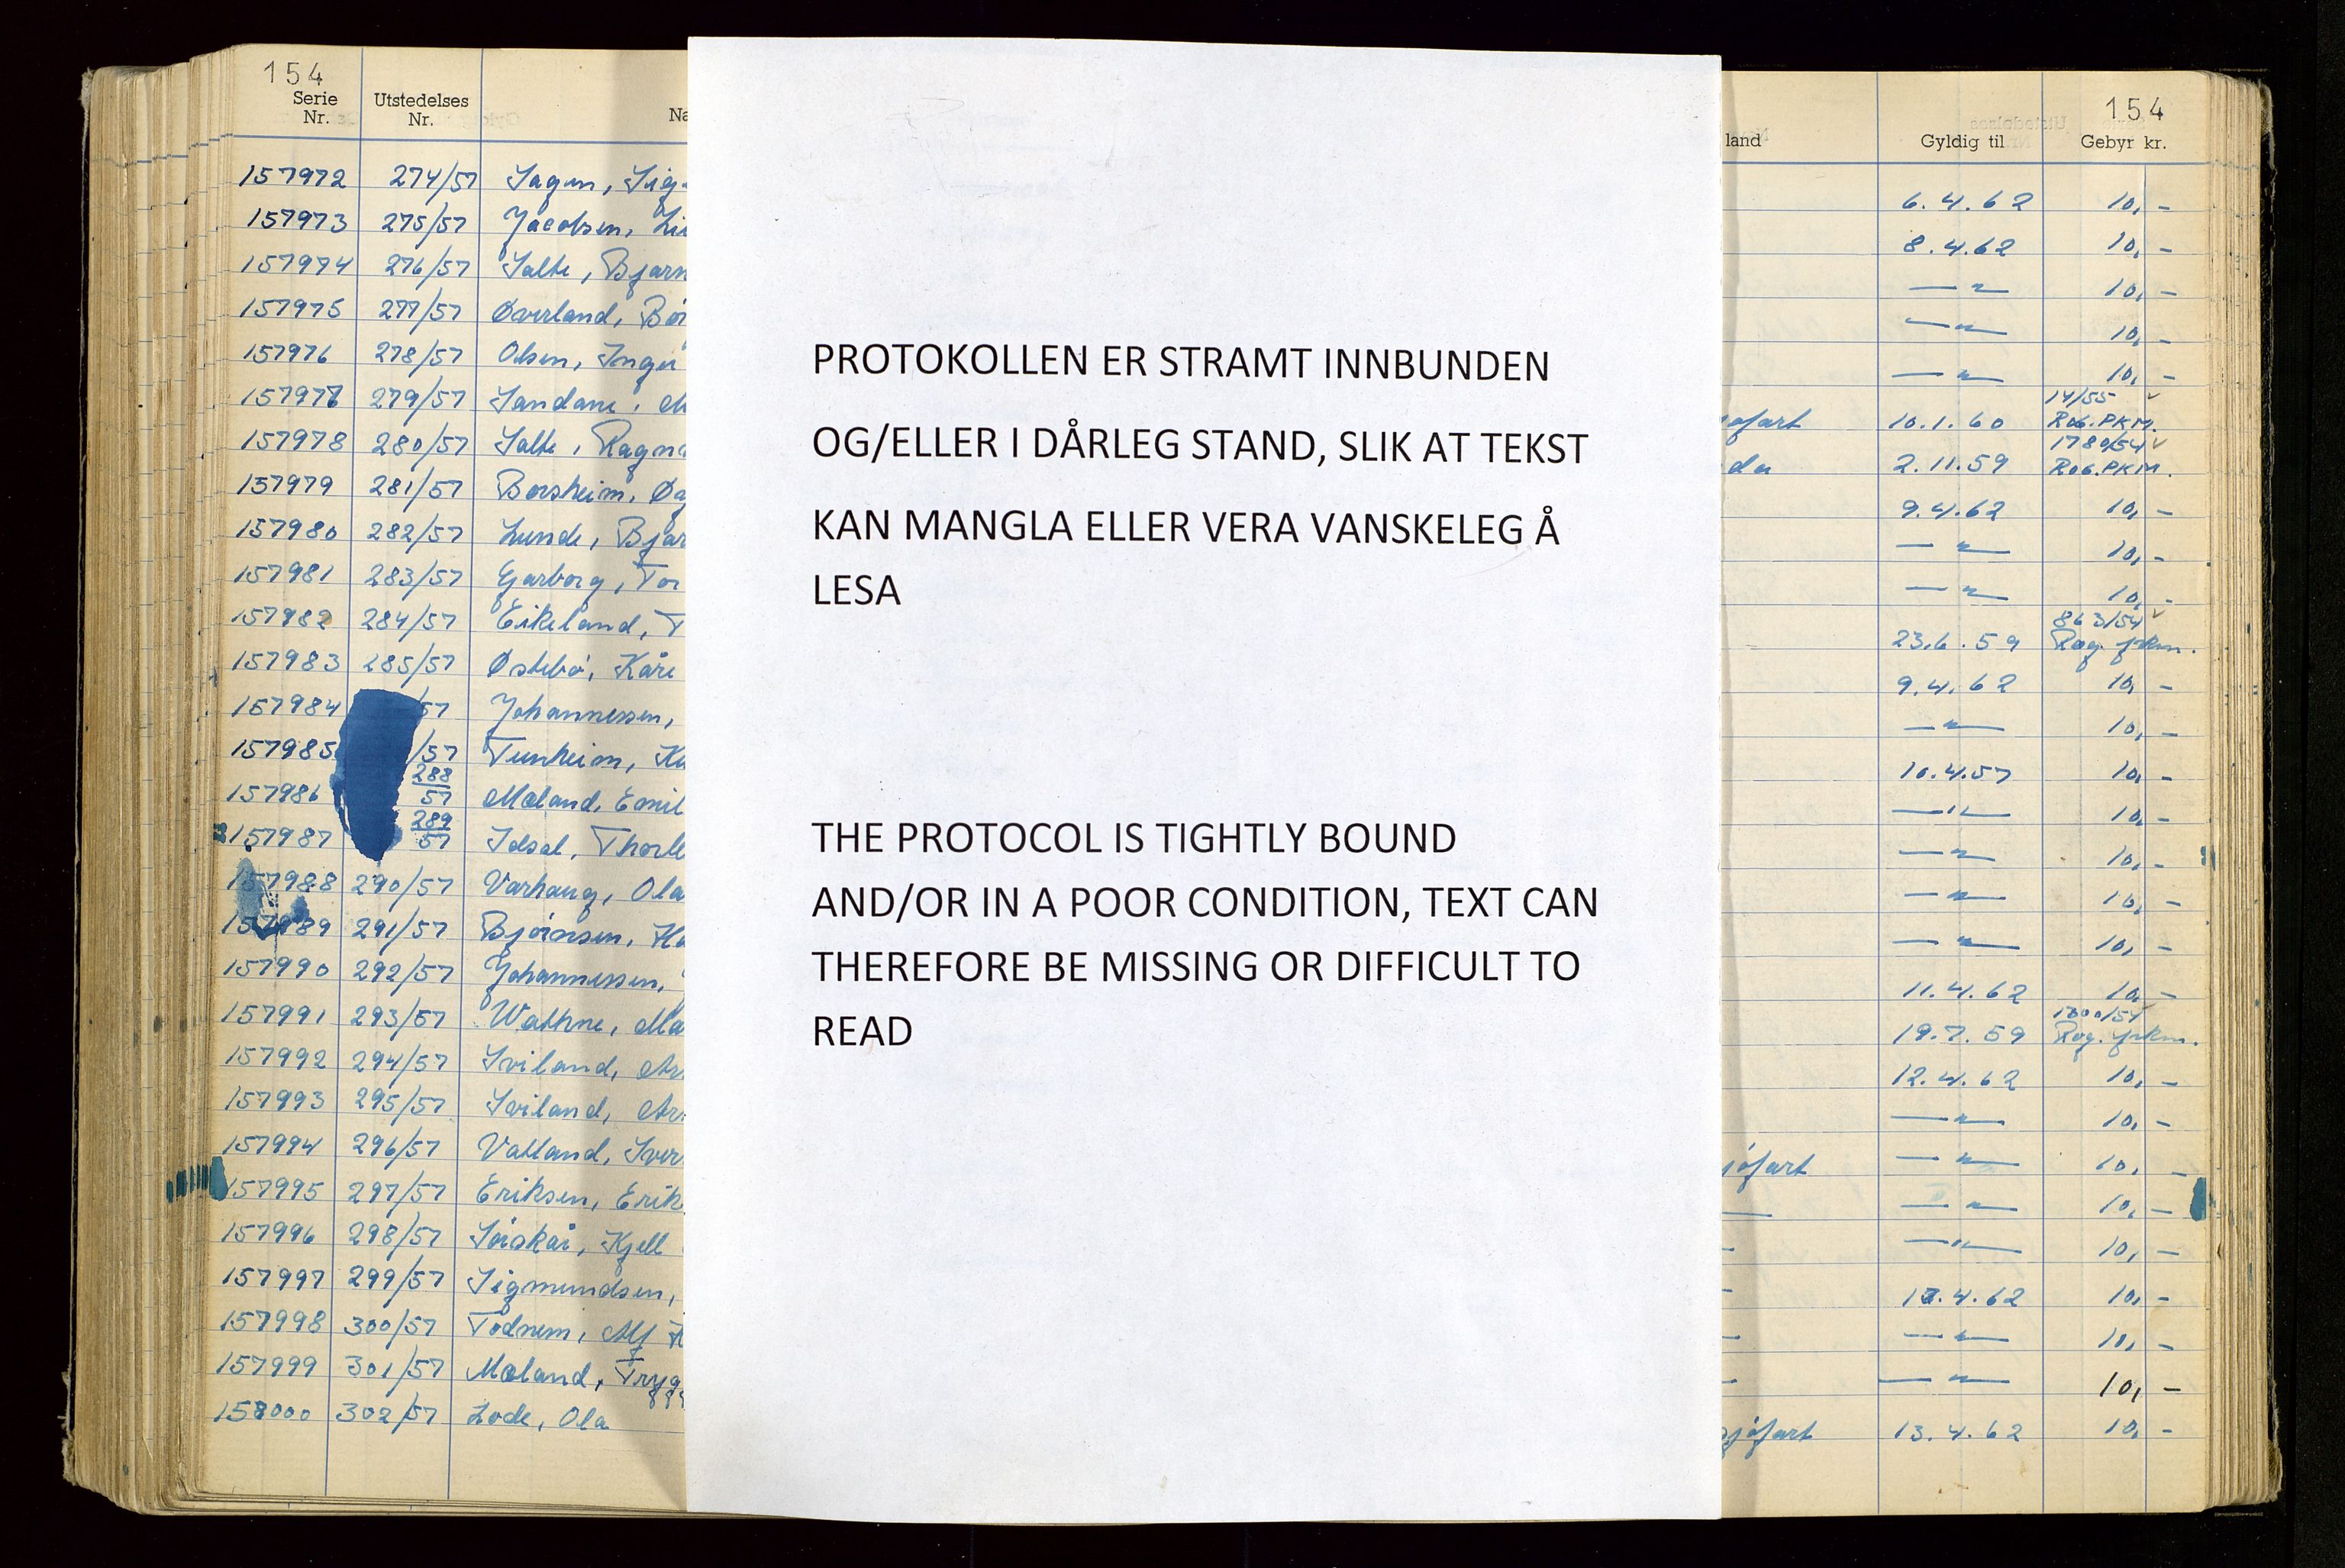 154
Serie Nr. Utstedelses Nr. Na
157972 274/57 Sagen, Sig
157973 275/57 Jacobsen, Li
157974 276/57 Salte, Bjarn
157975 277/57 Øverland, Bø
157976 278/57 Olsen, Inger
157977 279/57 Sandane, M
157978 280/57 Salte, Ragn
157979 281/57 Borsheim, Øg
157980 282/57 Lunde, Bjar
157981 283/57 Gjarborg, Tor
157982 284/57 Eikeland, T
157983 285/57 Østebø, Kåre
157984 57 Johannessen,
157985 /57 Tunheim, Ku
157986 288/57 Mæland, Emil
157987 289/57 Idsal, Thorle
157988 290/57 Varhaug, Ola
157989 291/57 Bjørnsen, Ha
157990 292/57 Johannessen,
157991 293/57 Wathne, Ma
157992 294/57 Sviland, Ar
157993 295/57 Sviland, Ar
157994 296/57 Vatland, Sver
157995 297/57 Eriksen, Erik
157996 298/57 Sørskår, Kjell
157997 299/57 Sigmundsen,
157998 300/57 Tødnem, Alf
157999 301/57 Mæland, Trygg
158000 302/57 Lode, Ola
PROTOKOLLEN ER STRAMT INNBUNDEN
OG/ELLER I DÅRLEG STAND, SLIK AT TEKST
KAN MANGLA ELLER VERA VANSKELEG Å
LESA
THE PROTOCOL IS TIGHTLY BOUND
AND/OR IN A POOR CONDITION, TEXT CAN
THEREFORE BE MISSING OR DIFFICULT TO
READ
154
land Gyldig til Gebyr kr.
6.4.62 10,-
8.4.62 10,-
— " — 10,-
— " — 10,-
— " — 10,-
14/55
øfart 10.1.60 Rog.PKM.
1780/54
da 2.11.59 Rog.PKM.
9.4.62 10,-
— " — 10,-
— " — 10,-
863/54
23.6.59 Rog. pkm.
9.4.62 10,-
— " — 10,-
10.4.57 10,-
— " — 10,-
— " — 10,-
— " — 10,-
— " — 10,-
11.4.62 10,-
1300/54
19.7.59 Rog. pkm.
12.4.62 10,-
— " — 10,-
jøfart — " — 10,-
— — " — 10,-
— — " — 10,-
— 12.4.62 10,-
— — " — 10,-
— — " — 10,-
sjøfart 13.4.62 10,-